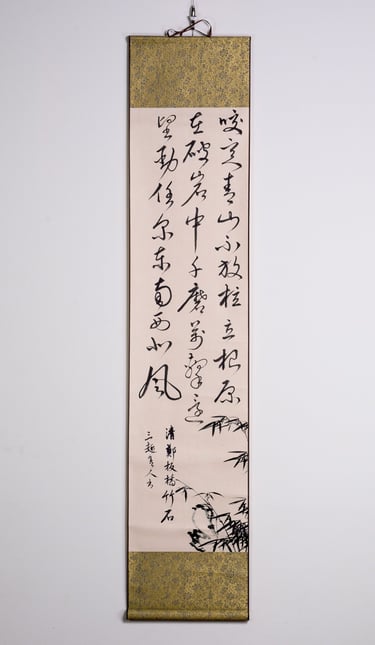 咬定青山不放松立根原
在破岩中千磨萬擊还
坚劲任尔东南西北風
清鄭板橋竹石
三趣人书